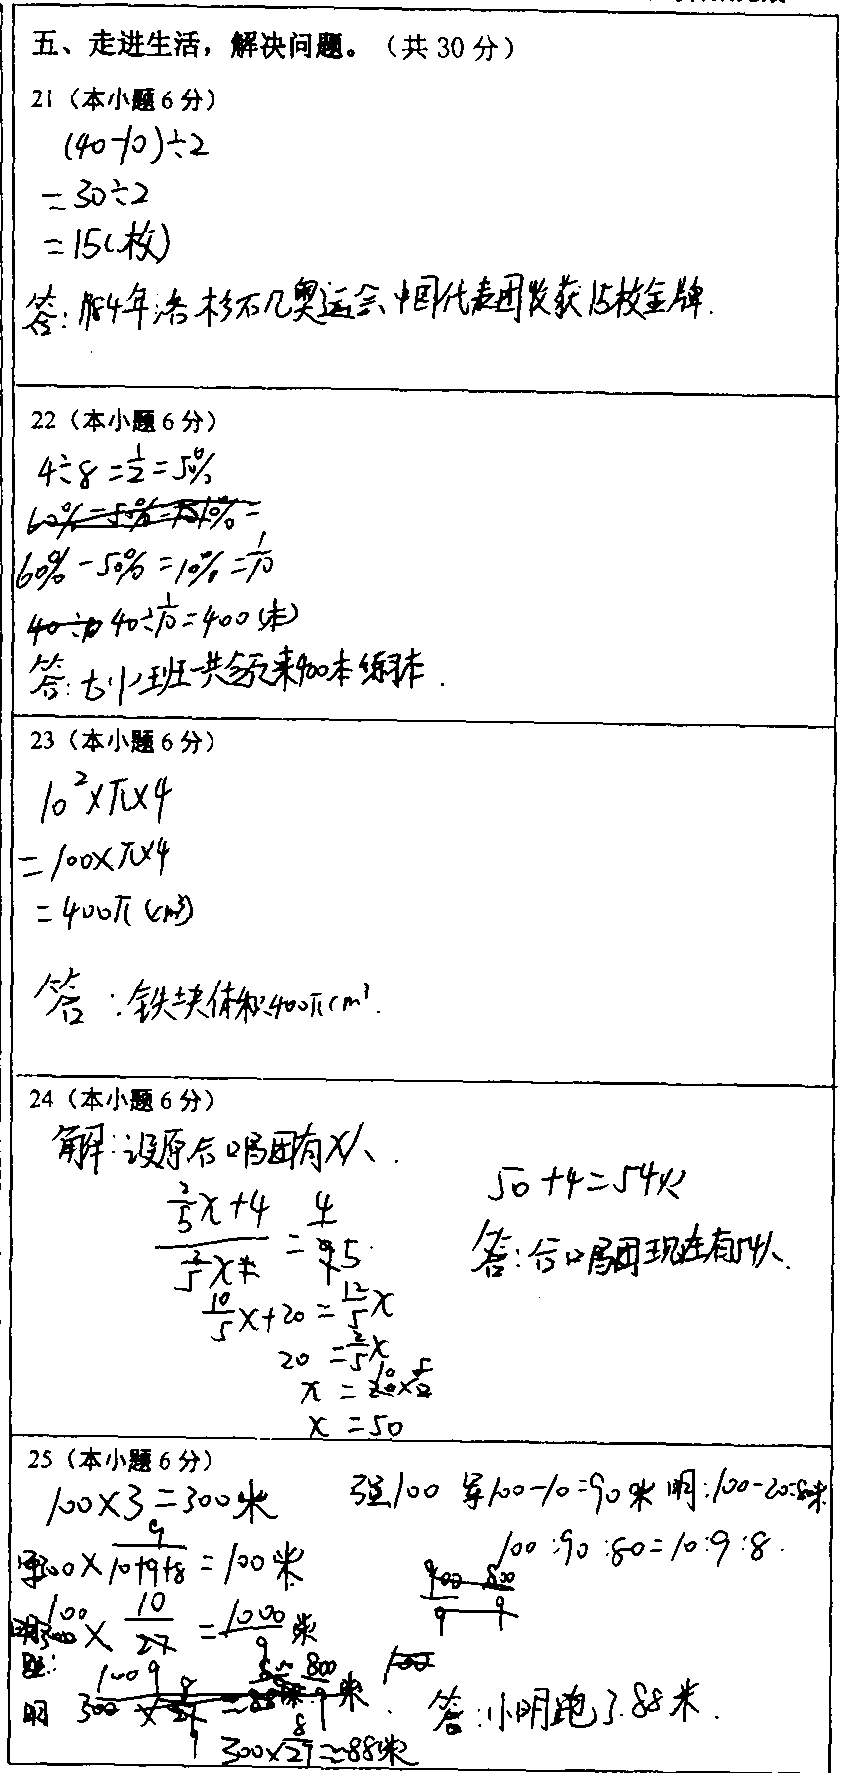 五、走进生活，解决问题。（共 30 分）
21（本小题 6 分）
(40-10)÷2
=30÷2
=15(枚)
答:1984年洛杉矶奥运会中国代表团收获15枚金牌.
22（本小题 6 分）
4÷8=1/2=50%
60%-50%=10%=1/10
40÷1/10=400(本)
答:六(1)班一共领来400本练习本.
23（本小题 6 分）
10²×π×4
=100×π×4
=400π(cm³)
答:铁块体积400πcm³.
24（本小题 6 分）
解:设原合唱团有x人.
(2/5x+4)/(3/5x)=4/5
10/5x+20=12/5x
20=2/5x
x=20×5/2
x=50
50+4=54人
答:合唱团现在有54人.
25（本小题 6 分）
100×3=300米
强100 军100-10=90米 明:100-20=80米
100:90:80=10:9:8.
军300×9/(10+9+8)=100米
300×10/27=1000/9米
明
300×8/27≈88米
答:小明跑了88米.